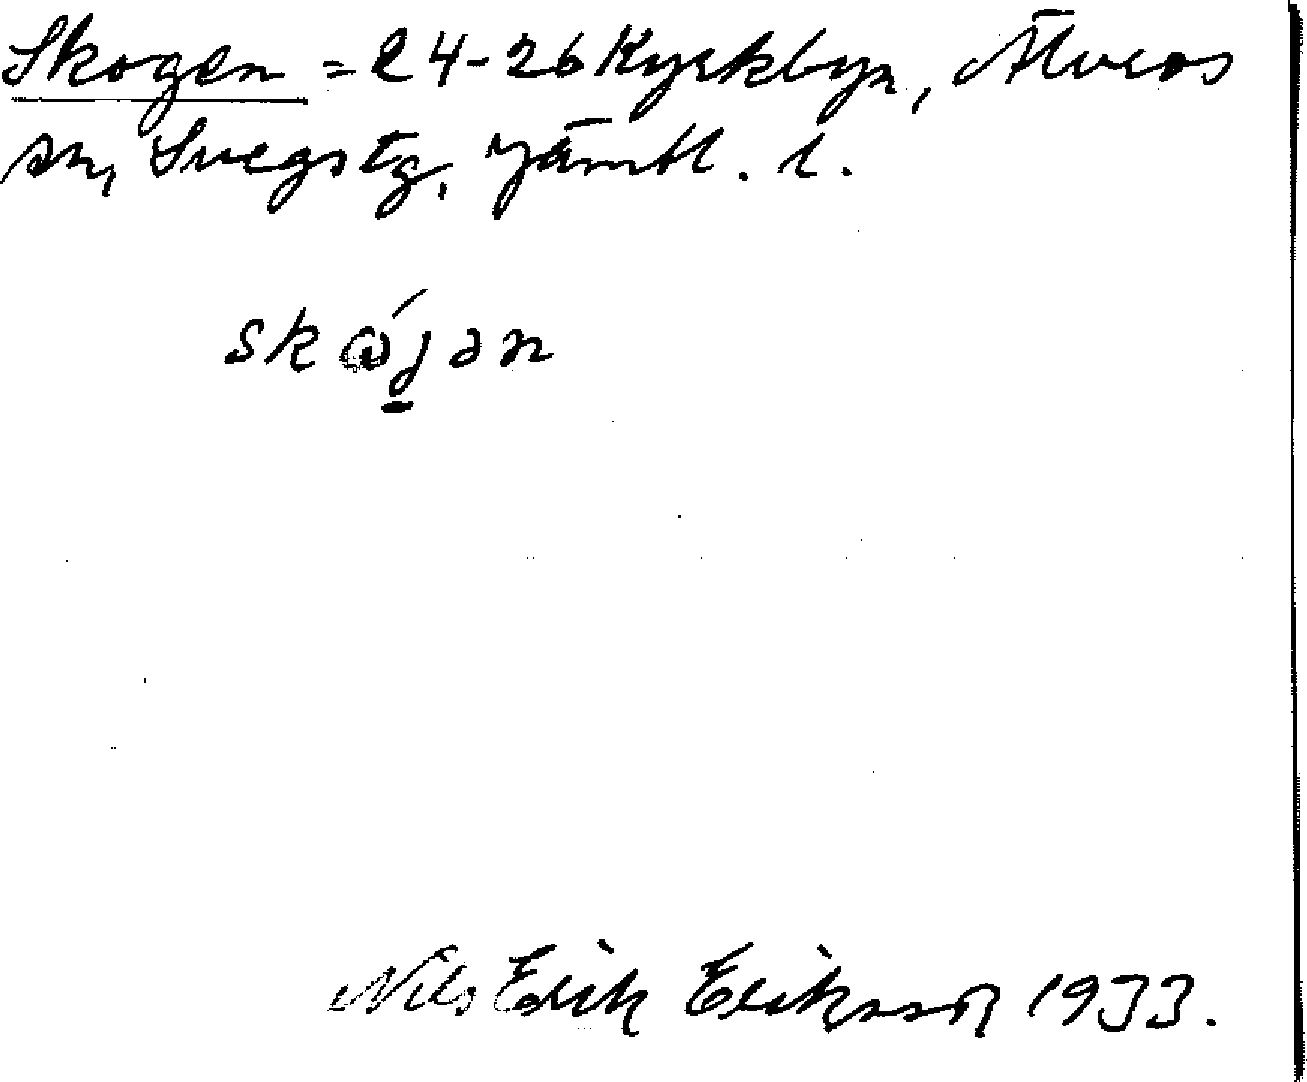 Skogen = 24-26 Kyrkbyn, Älvros
sn, Svegs tg, Jämtl. l.
skǿjən
Nils Erik Eriksson 1933.